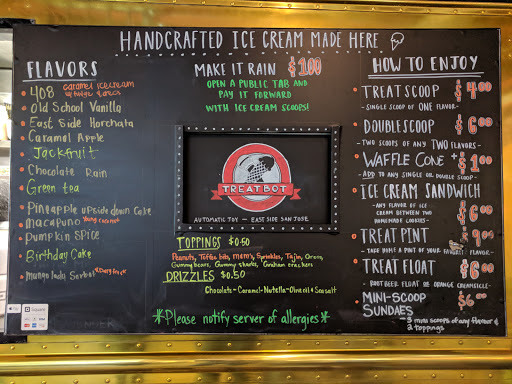 HANDCRAFTED ICE CREAM MADE HERE
FLAVORS
408 caramel ice cream
Old School Vanilla
East Side Horchata
Caramel Apple
Jackfruit
Chocolate Rain
Green tea
Pineapple upside down Cake
macapuno young coconut
Pumpkin SPICE
Birthday Cake
Mangonada Sorbet *Dairy free*
MAKE IT RAIN $1.00
OPEN A PUBLIC TAB AND
PAY IT FORWARD
WITH ICE CREAM SCOOPS!
TREATBOT
AUTOMATIC TOY — EAST SIDE SAN JOSE
TOPPINGS $0.50
Peanuts, Toffee bits, M&M's, Sprinkles, Tajin, Oreos,
Gummy bears, Gummy sharks, Graham crackers
DRIZZLES $0.50
Chocolate - Caramel - Nutella - Olive oil & Sea salt
*Please notify server of allergies*
HOW TO ENJOY
TREAT SCOOP $4.00
- SINGLE SCOOP OF ONE FLAVOR -
DOUBLE SCOOP $6.00
- TWO SCOOPS OF ANY TWO FLAVORS -
WAFFLE CONE + $1.00
ADD TO ANY SINGLE OR DOUBLE SCOOP
ICE CREAM SANDWICH
- ANY FLAVOR OF ICE
CREAM BETWEEN TWO
HOMEMADE COOKIES -
$6.00
TREAT PINT $9.00
- TAKE HOME A PINT OF YOUR FAVORITE FLAVOR -
TREAT FLOAT $6.00
- ROOT BEER FLOAT OR ORANGE CREAMSICLE -
MINI-SCOOP $6.00
SUNDAES
- 3 mini scoops of any flavor &
2 toppings